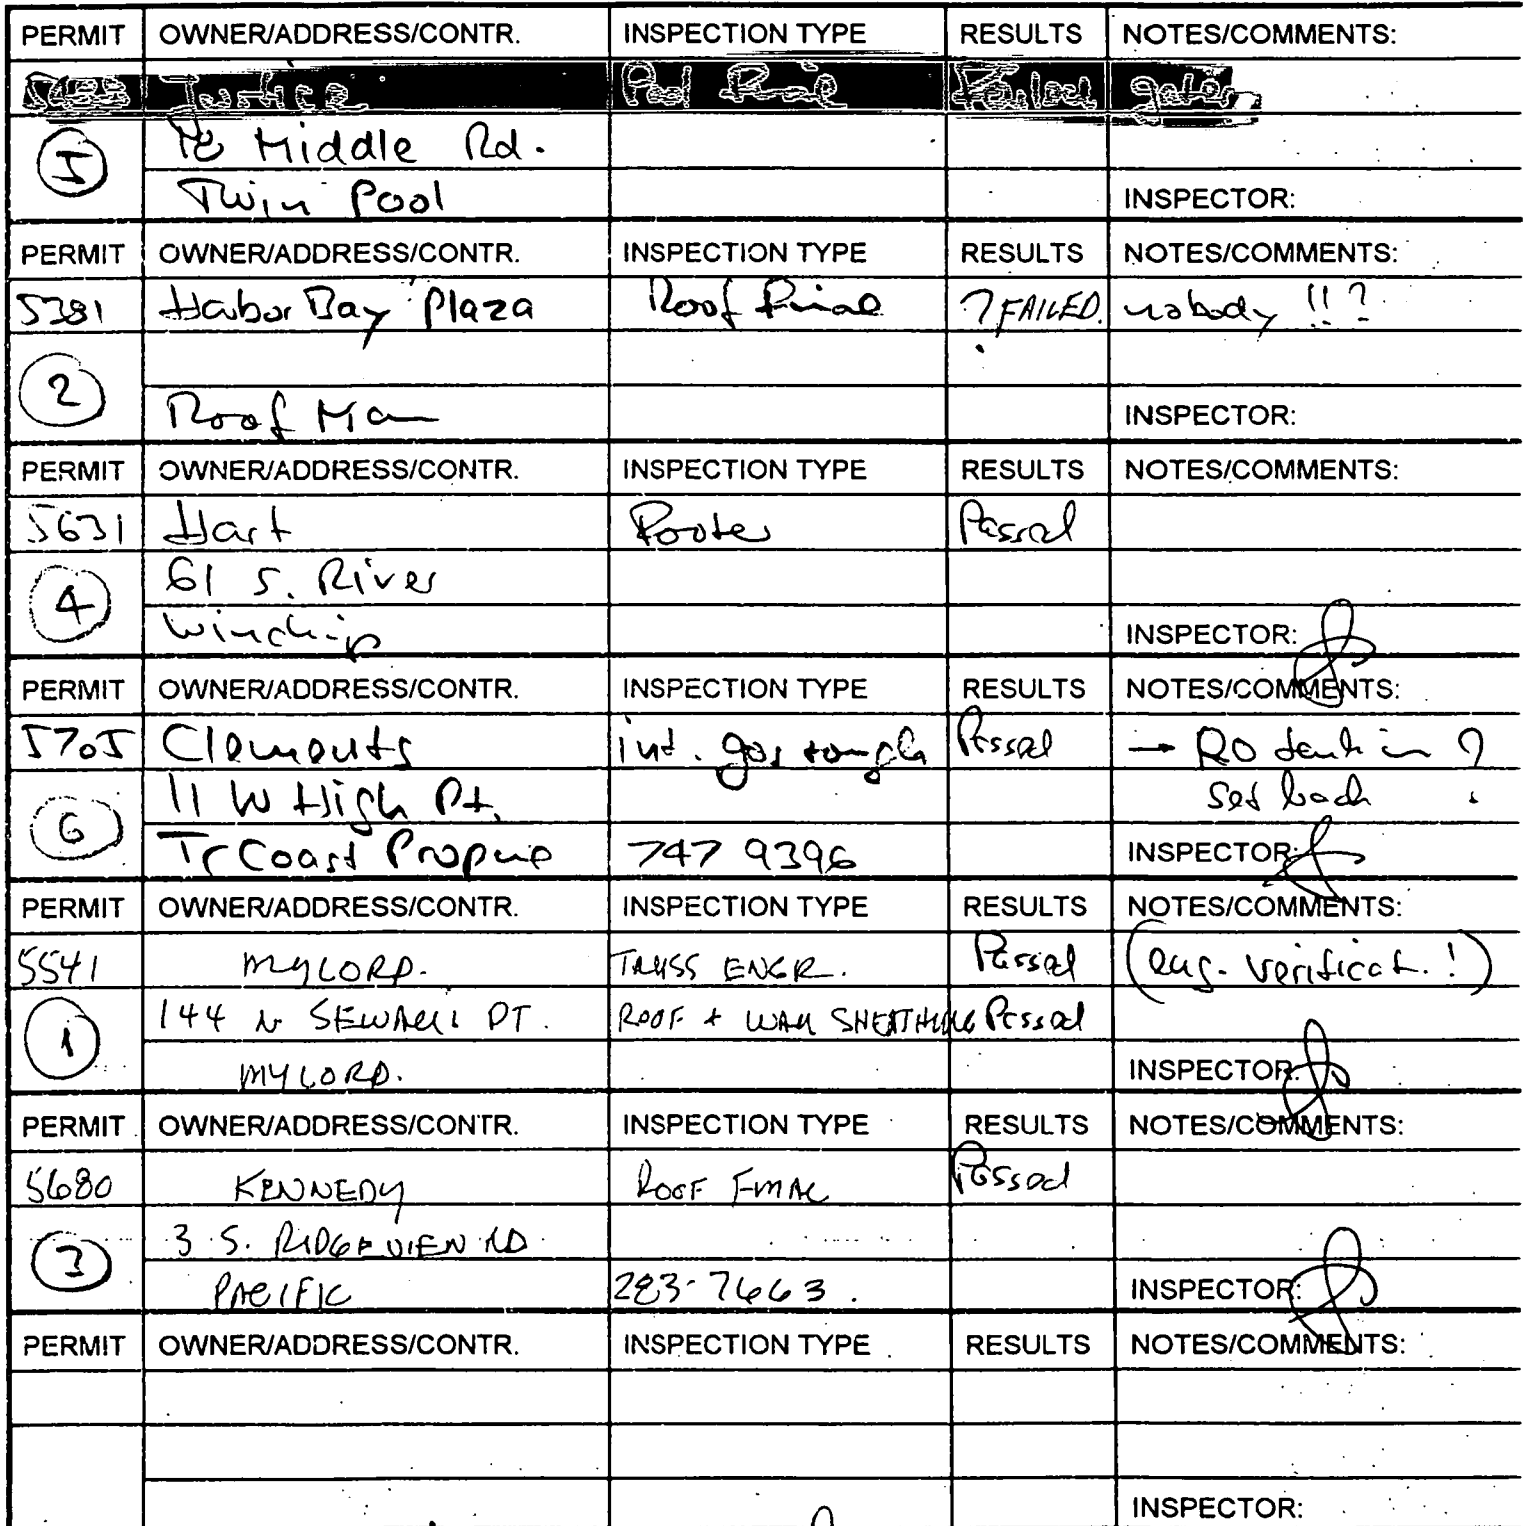 PERMIT OWNER/ADDRESS/CONTR. INSPECTION TYPE RESULTS NOTES/COMMENTS:
Justice Pool Final gates
5 18 Middle Rd.
Twin Pool INSPECTOR:
PERMIT OWNER/ADDRESS/CONTR. INSPECTION TYPE RESULTS NOTES/COMMENTS:
5381 Harbor Bay Plaza Roof Final ? FAILED. nobody !!?
2
Roof Man INSPECTOR:
PERMIT OWNER/ADDRESS/CONTR. INSPECTION TYPE RESULTS NOTES/COMMENTS:
5631 Hart Footer Passed
4 61 S. River
Winchip INSPECTOR:
PERMIT OWNER/ADDRESS/CONTR. INSPECTION TYPE RESULTS NOTES/COMMENTS:
5705 Clements int. gas rough Passed → RO tank in ?
6 11 W High Pt. set back
Tr Coast Propane 747 9396 INSPECTOR:
PERMIT OWNER/ADDRESS/CONTR. INSPECTION TYPE RESULTS NOTES/COMMENTS:
5541 MYCORP. TRUSS ENGR. Passed (eng. verificat. !)
1 144 N SEWALLS PT. ROOF + WALL SHEATHING Passed
MYCORP. INSPECTOR:
PERMIT OWNER/ADDRESS/CONTR. INSPECTION TYPE RESULTS NOTES/COMMENTS:
5680 KENNEDY ROOF FINAL Passed
3 3 S. RIDGEVIEW RD
PACIFIC 283-7663. INSPECTOR:
PERMIT OWNER/ADDRESS/CONTR. INSPECTION TYPE RESULTS NOTES/COMMENTS:
INSPECTOR: